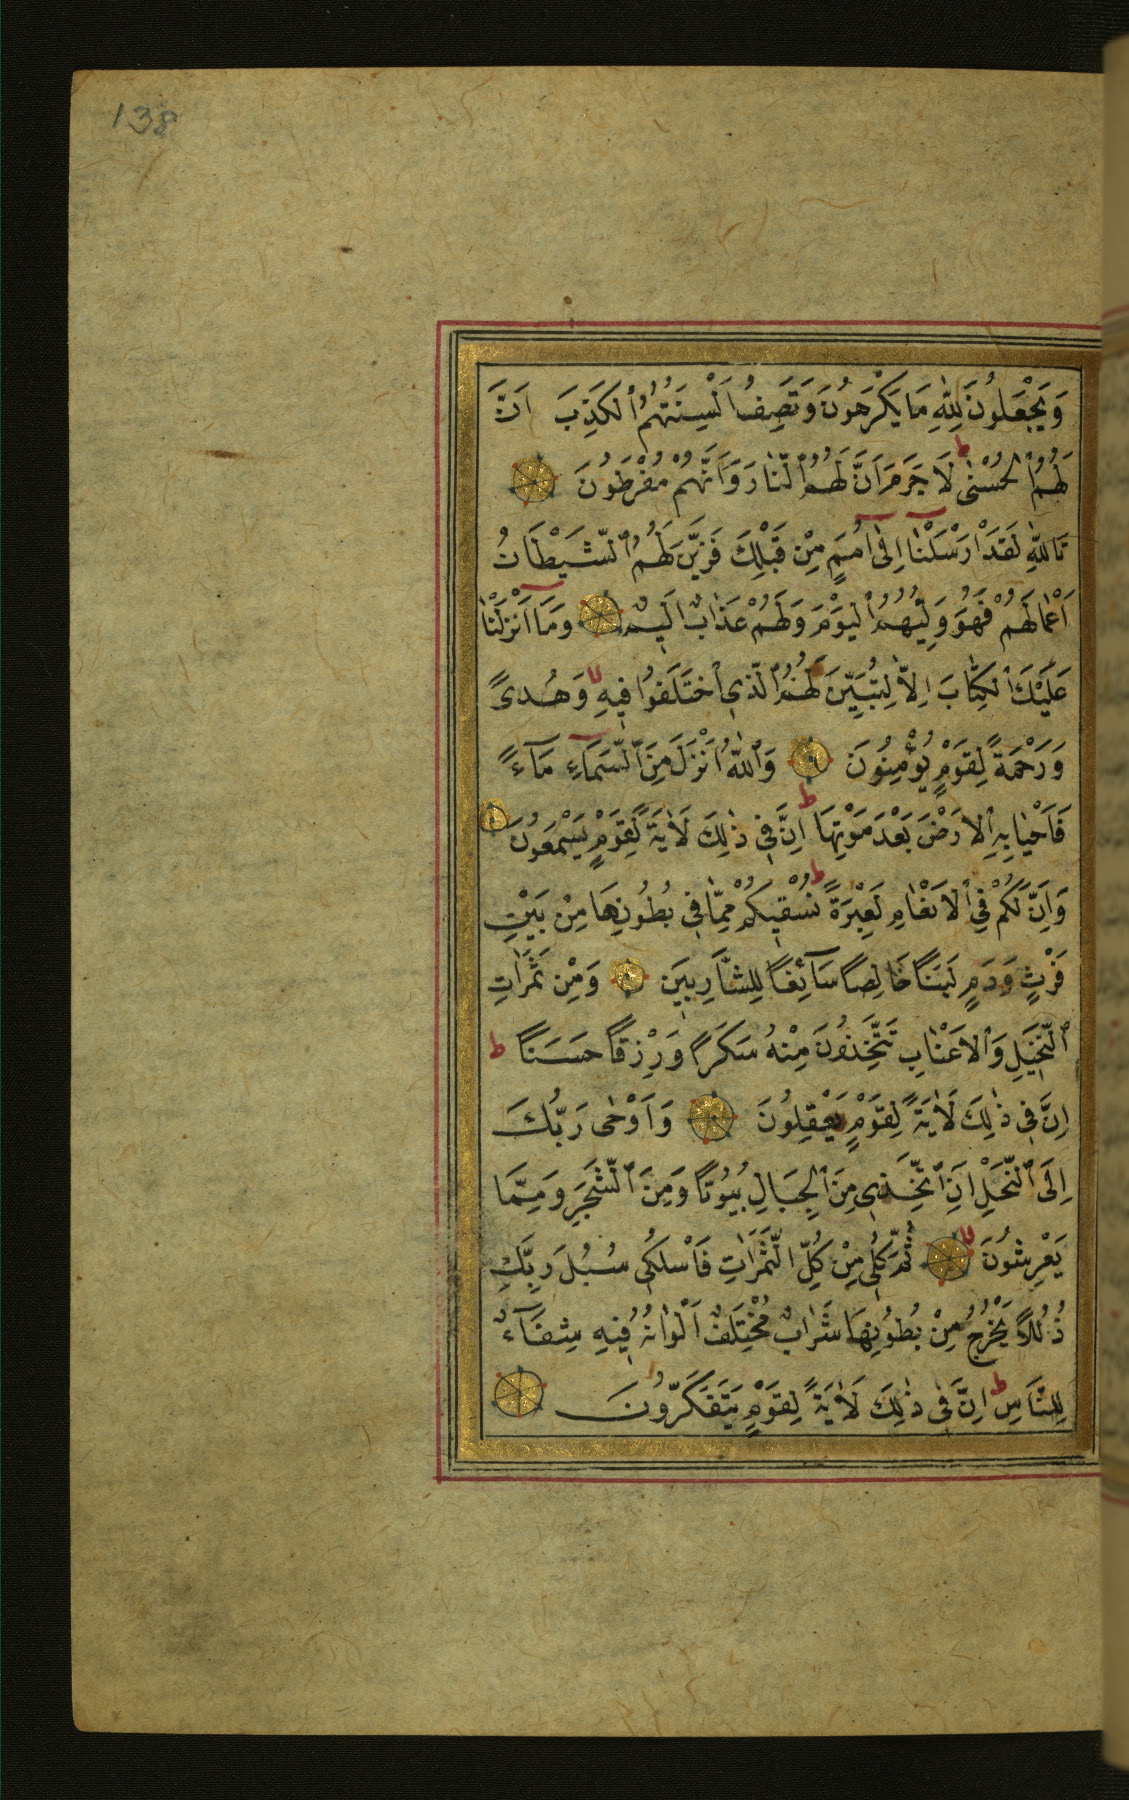 138
وَيَجْعَلُونَ لِلّٰهِ مَا يَكْرَهُونَ وَتَصِفُ اَلْسِنَتُهُمُ ٱلْكَذِبَ اَنَّ
لَهُمُ ٱلْحُسْنٰى ط لَا جَرَمَ اَنَّ لَهُمُ ٱلنَّارَ وَاَنَّهُمْ مُفْرَطُونَ
تَاللّٰهِ لَقَدْ اَرْسَلْنٰا اِلٰىٓ اُمَمٍ مِنْ قَبْلِكَ فَزَيَّنَ لَهُمُ ٱلشَّيْطَانُ
اَعْمَالَهُمْ فَهُوَ وَلِيُّهُمُ ٱلْيَوْمَ وَلَهُمْ عَذَابٌ اَلِيمٌ وَمَٓا اَنْزَلْنٰا
عَلَيْكَ ٱلْكِتٰابَ اِلَّا لِتُبَيِّنَ لَهُمُ ٱلَّذِي ٱخْتَلَفُوا فِيهِ لا وَهُدىً
وَرَحْمَةً لِقَوْمٍ يُؤْمِنُونَ وَٱللّٰهُ اَنْزَلَ مِنَ ٱلسَّمَٓاءِ مَٓاءً
فَاَحْيٰا بِهِ ٱلْاَرْضَ بَعْدَ مَوْتِهَا ط اِنَّ فِي ذٰلِكَ لَاٰيَةً لِقَوْمٍ يَسْمَعُونَ
وَاِنَّ لَكُمْ فِي ٱلْاَنْعٰامِ لَعِبْرَةً ط نُسْقِيكُمْ مِمَّا فِي بُطُونِهَا مِنْ بَيْنِ
فَرْثٍ وَدَمٍ لَبَنًا خَالِصًا سَٓائِغًا لِلشَّارِبِينَ وَمِنْ ثَمَرَاتِ
ٱلنَّخِيلِ وَٱلْاَعْنٰابِ تَتَّخِذُونَ مِنْهُ سَكَرًا وَرِزْقًا حَسَنًا ط
اِنَّ فِي ذٰلِكَ لَاٰيَةً لِقَوْمٍ يَعْقِلُونَ وَاَوْحٰى رَبُّكَ
اِلَى ٱلنَّحْلِ اَنِ ٱتَّخِذِي مِنَ ٱلْجِبَالِ بُيُوتًا وَمِنَ ٱلشَّجَرِ وَمِمَّا
يَعْرِشُونَ لا ثُمَّ كُلِي مِنْ كُلِّ الثَّمَرَاتِ فَاسْلُكِي سُبُلَ رَبِّكِ
ذُلُلًا يَخْرُجُ مِنْ بُطُونِهَا شَرٰابٌ مُخْتَلِفٌ اَلْوٰانُهُ فِيهِ شِفَٓاءٌ
لِلنَّاسِ ط اِنَّ فِي ذٰلِكَ لَاٰيَةً لِقَوْمٍ يَتَفَكَّرُونَ